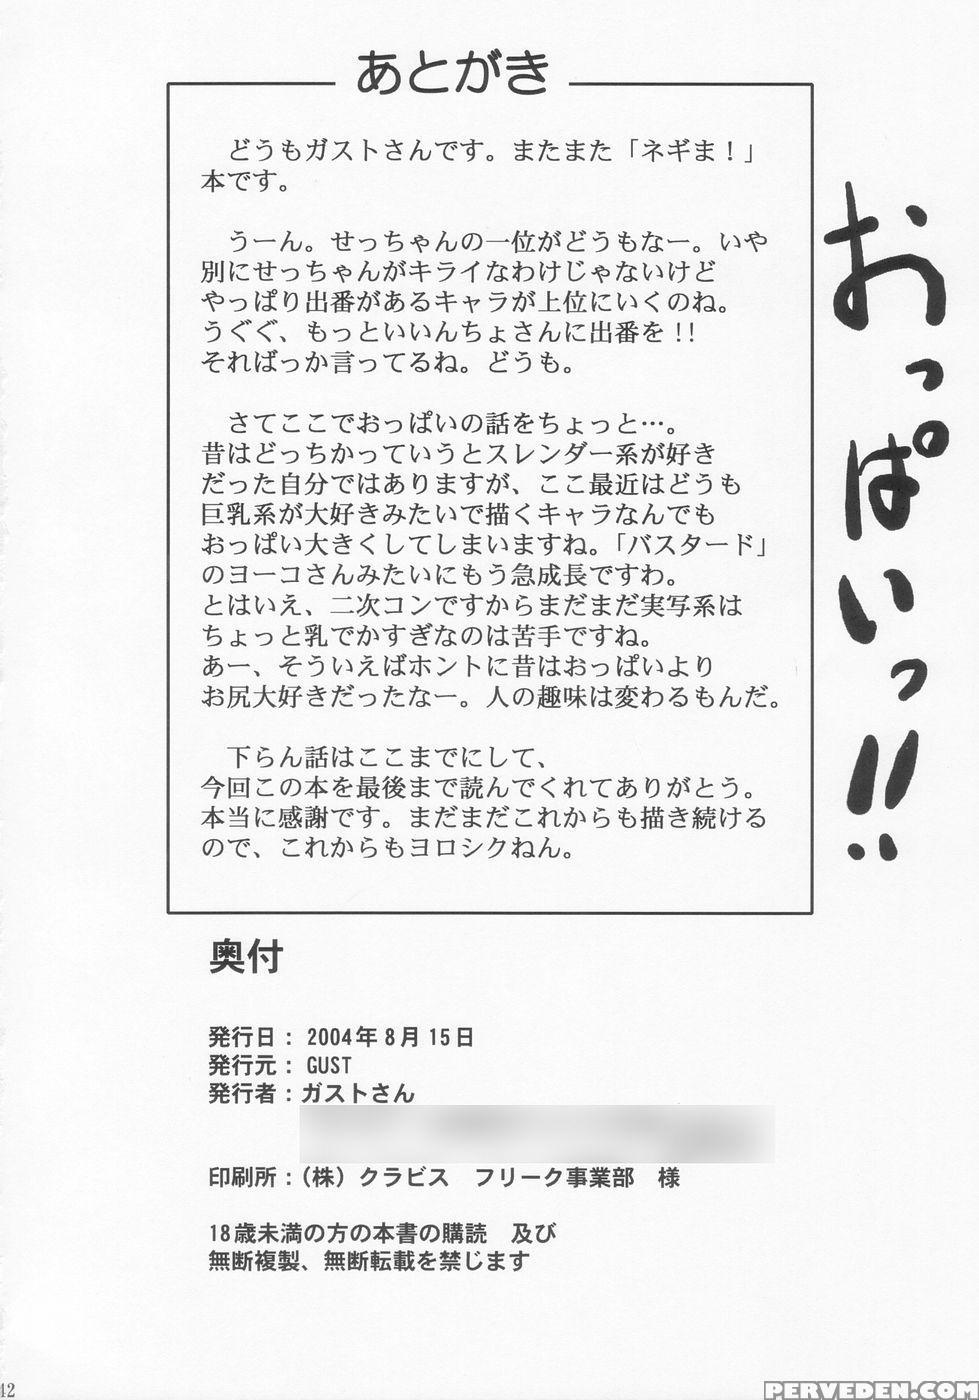 あとがき
どうもガストさんです。またまた「ネギま！」
本です。
うーん。せっちゃんの一位がどうもなー。いや
別にせっちゃんがキライなわけじゃないけど
やっぱり出番があるキャラが上位にいくのね。
うぐぐ、もっといいんちょさんに出番を!!
そればっか言ってるね。どうも。
さてここでおっぱいの話をちょっと…。
昔はどっちかっていうとスレンダー系が好き
だった自分ではありますが、ここ最近はどうも
巨乳系が大好きみたいで描くキャラなんでも
おっぱい大きくしてしまいますね。「バスタード」
のヨーコさんみたいにもう急成長ですわ。
とはいえ、二次コンですからまだまだ実写系は
ちょっと乳でかすぎなのは苦手ですね。
あー、そういえばホントに昔はおっぱいより
お尻大好きだったなー。人の趣味は変わるもんだ。
下らん話はここまでにして、
今回この本を最後まで読んでくれてありがとう。
本当に感謝です。まだまだこれからも描き続ける
ので、これからもヨロシクねん。
おっぱいっ!!
奥付
発行日： 2004年8月15日
発行元： GUST
発行者：ガストさん
印刷所：（株）クラビス　フリーク事業部　様
18歳未満の方の本書の購読　及び
無断複製、無断転載を禁じます
42
PERVEDEN.COM